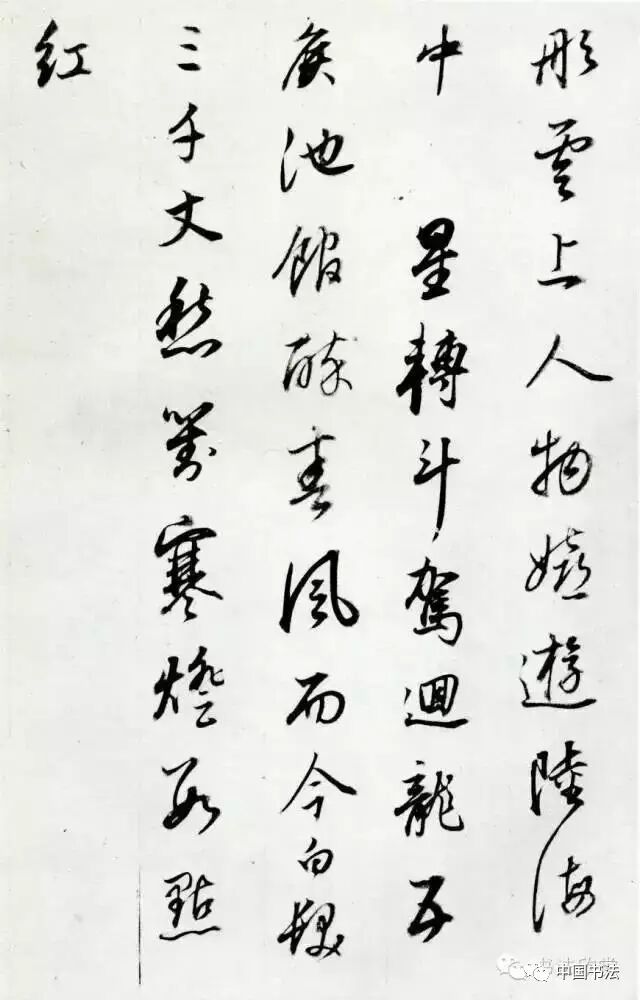 彤雲上人物嬉遊陸海
中 星轉斗駕迴龍五
侯池館醉春風而今白髮
三千丈愁對寒燈數點
紅
中国书法